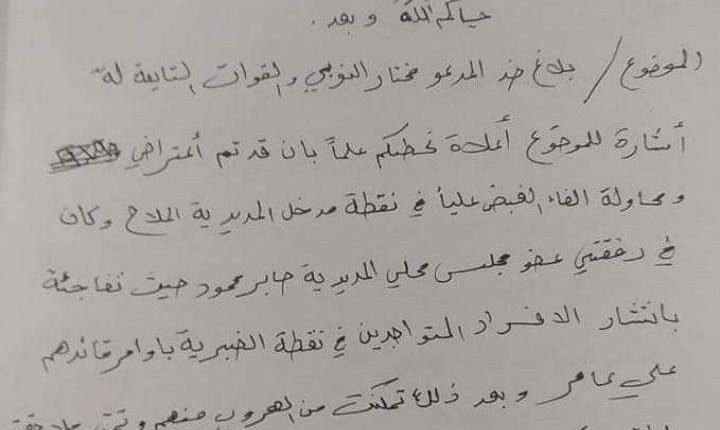 حياكم الله وبعد .
الموضوع / بلاغ ضد المدعو مختار النوبي والقوات التابعة لة
أشارة للموضوع أعلاة نحطكم علماً بان قد تم أعتراضي
ومحاولة القاء القبض علياً في نقطة مدخل المديرية الملاح وكان
في رفقتي عضو مجلس محلي المديرية صابر محمود حيث تفاجئة
بانتشار الافراد المتواجدين في نقطة الضبرية باوامر قائدهم
علي عامر وبعد ذلك تمكنت من الهروب منهم وتم